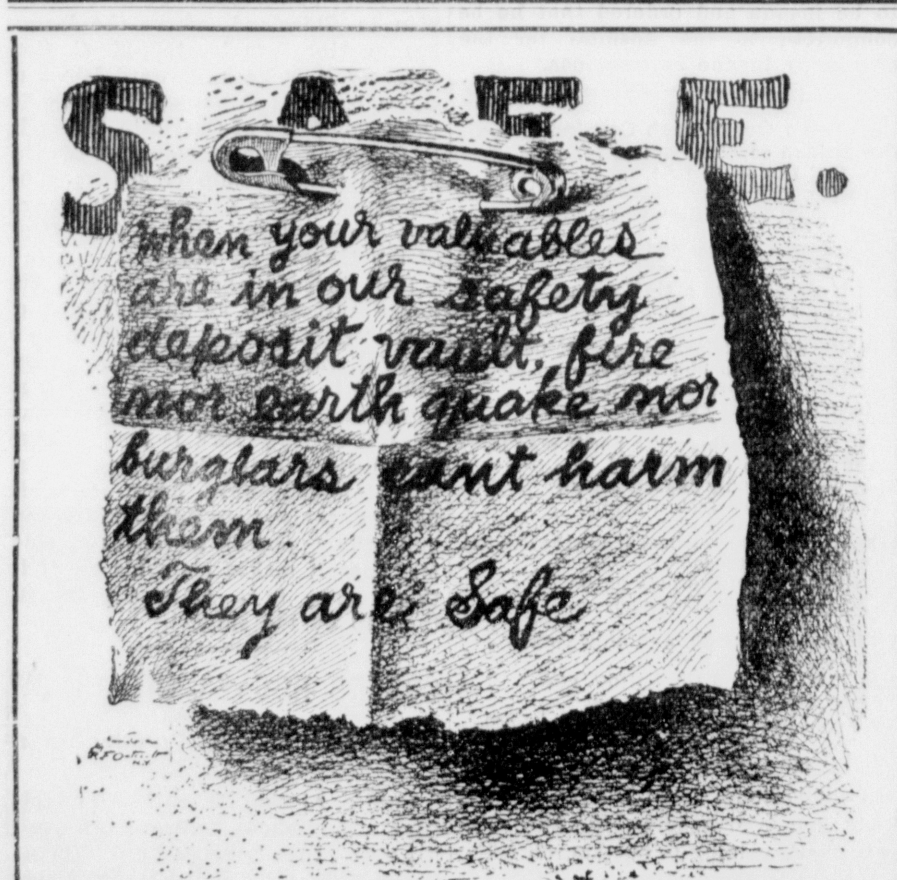 SAFE.
when your valuables
are in our safety
deposit vault, fire
nor earth quake nor
burglars cant harm
them.
They are Safe